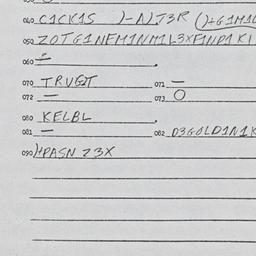 040 C1CK1S )-A)J3R (H+G1M1L
050 ZOTG1NFM1NM1L3XF1ND1K1
060 ∸ .
070 TRVGIT 071 —
072 — 073 O
080 KELBL .
081 — 082 D3GOLD1N1K
090 )+PASN Z3X